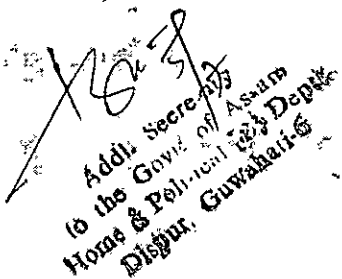 Addl. Secretary
to the Govt. of Assam
Home & Political (B) Deptt.
Dispur, Guwahati-6